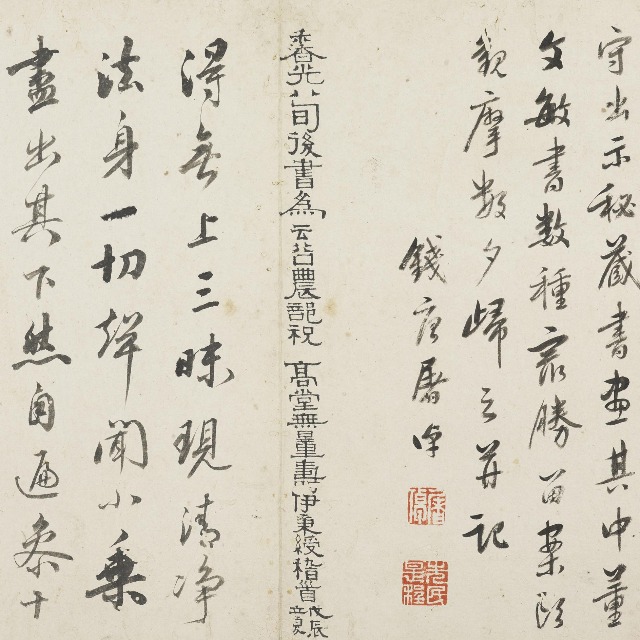 守出示秘藏書畫其中董
文敏書數種最勝留案頭
觀摩數夕歸之并記
錢唐屠倬
先民是程
香光八旬後書為云谷農部祝 高堂無量壽 伊秉綬稽首 戊辰立夏
得無上三昧現清淨
法身一切聲聞小乘
盡出其下然自遍參十